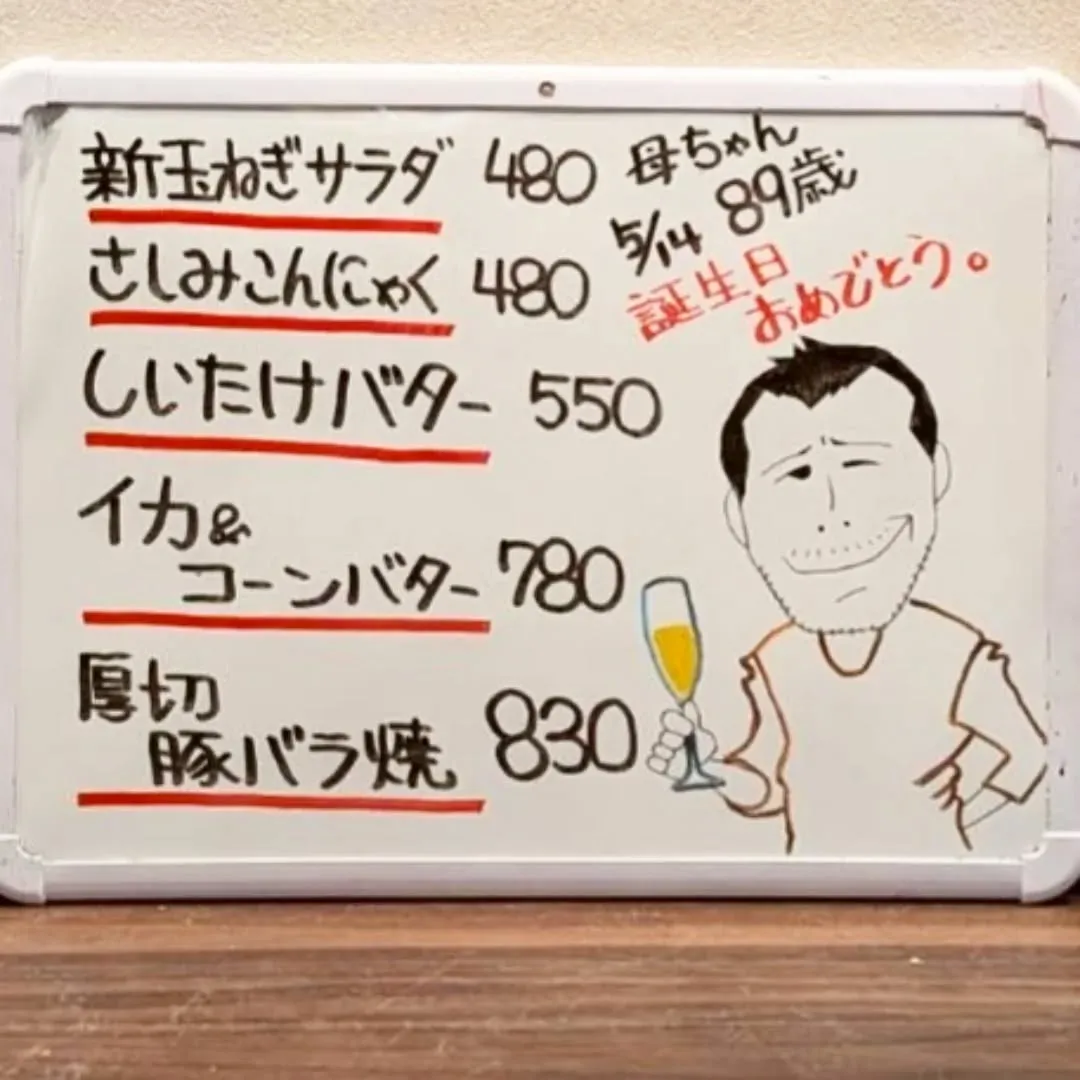 新玉ねぎサラダ 480
さしみこんにゃく 480
しいたけバター 550
イカ&
コーンバター 780
厚切
豚バラ焼 830
母ちゃん
5/14 89歳
誕生日
おめでとう。